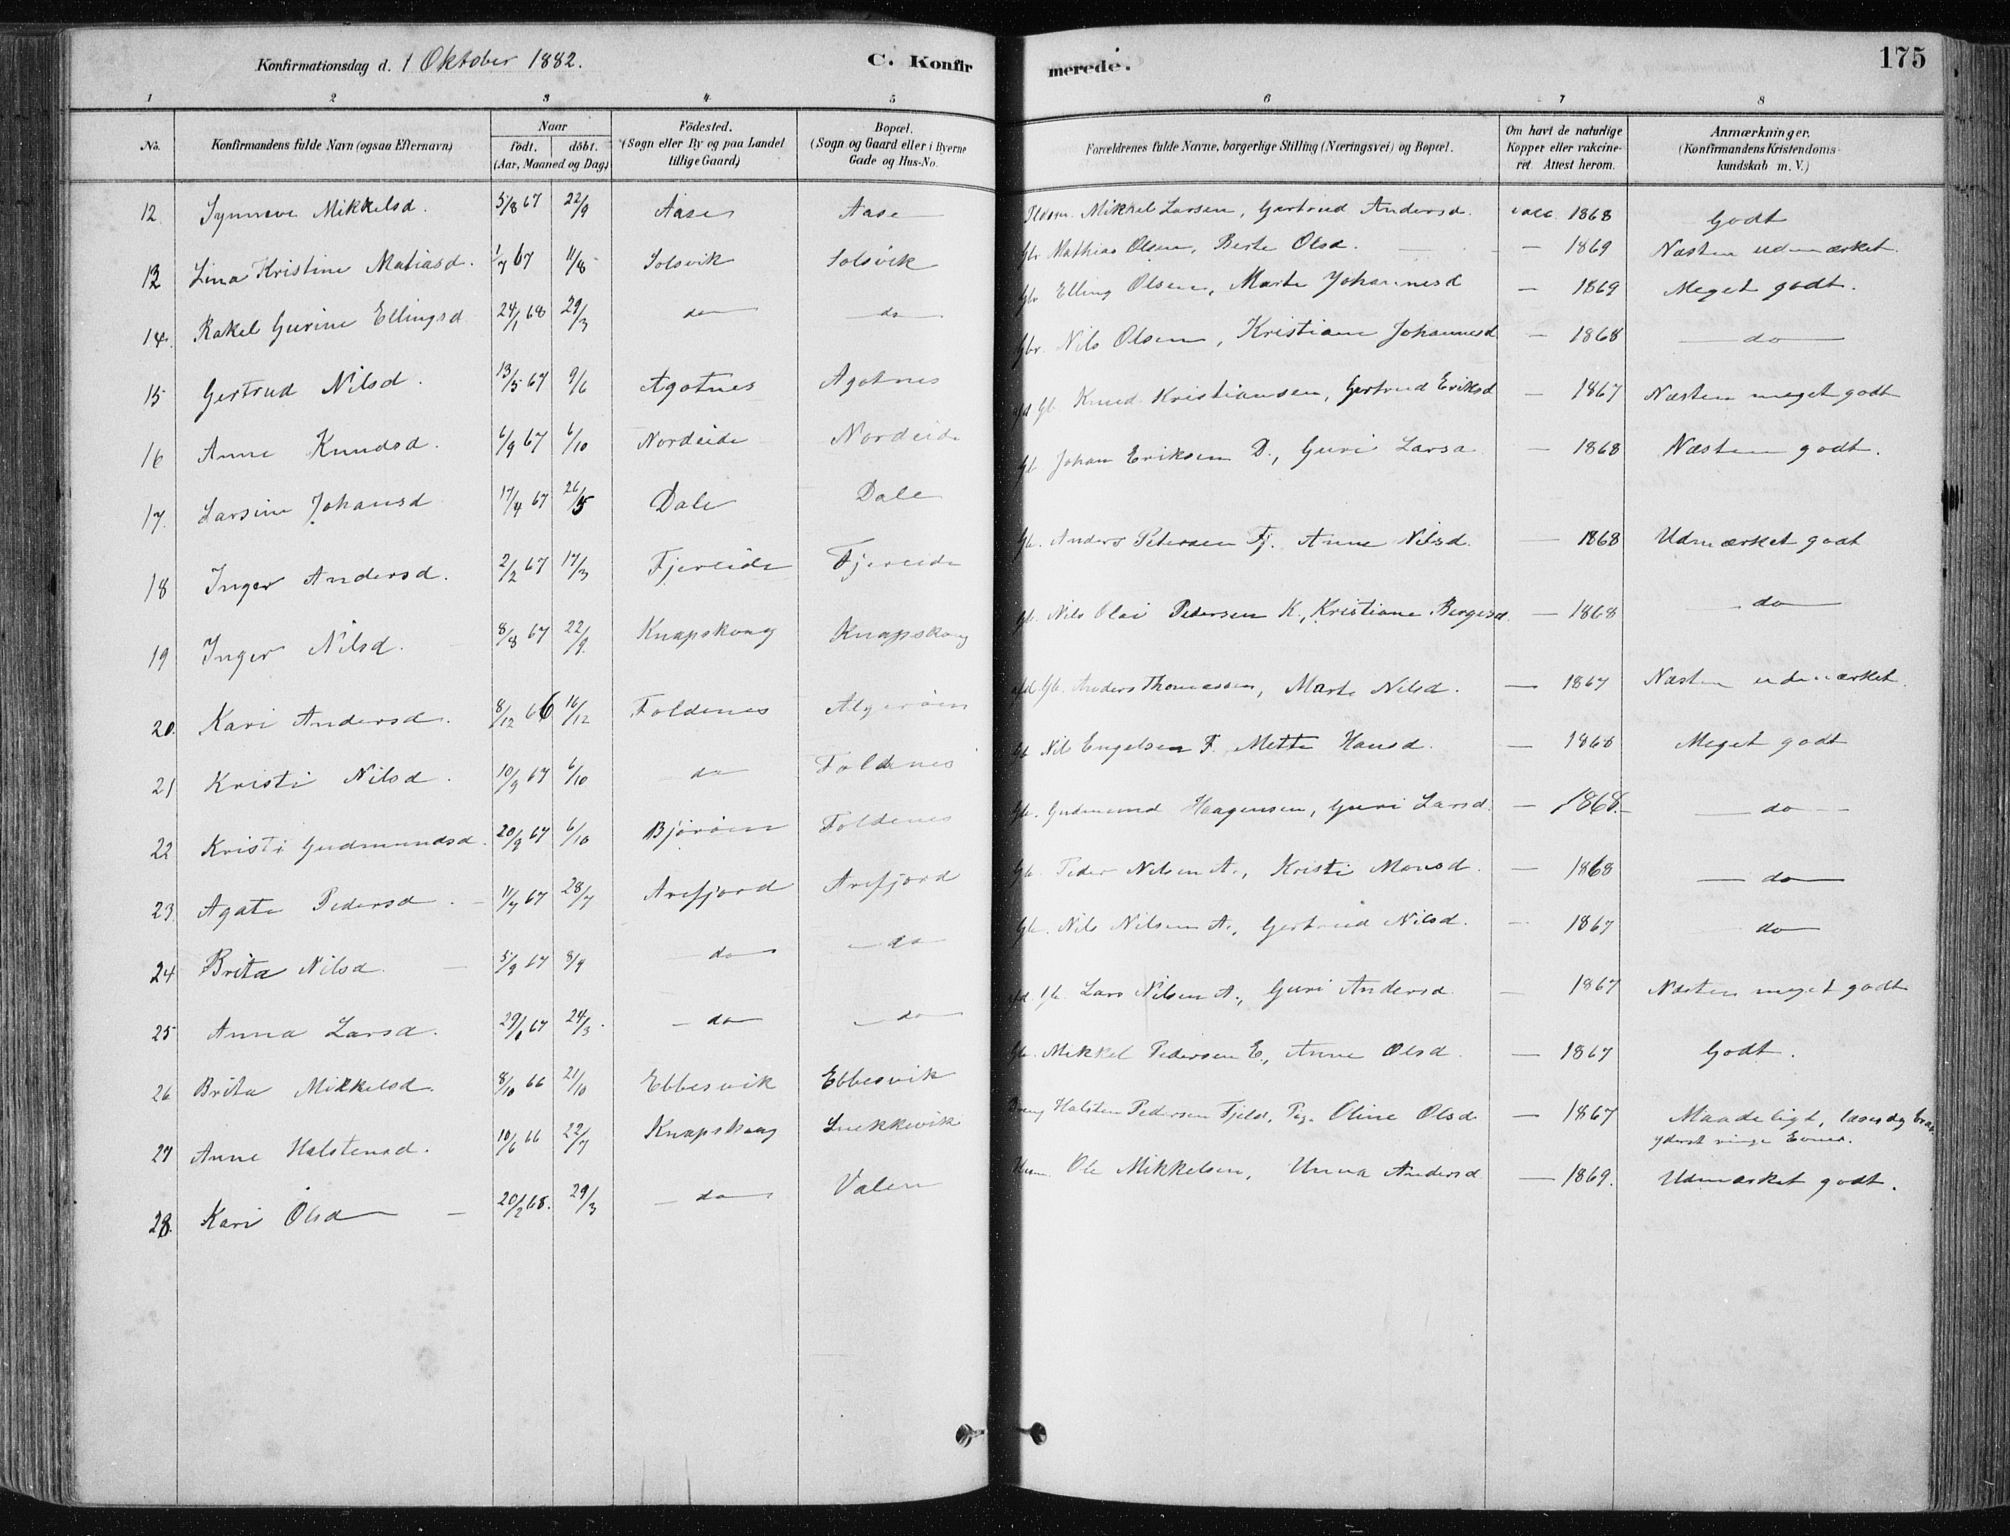 Konfirmationsdag d. 1 Oktober 1882. C. Konfirmerede. 175
1 2 3 4 5 6 7 8
No. Konfirmandens fulde Navn (ogsaa Efternavn) Naar födt. döbt. (Aar, Maaned og Dag) Födested. (Sogn eller By og paa Landet tillige Gaard) Bopæl. (Sogn og Gaard eller i Byerne Gade og Hus-No. Forældrenes fulde Navne, borgerlige Stilling (Næringsvei) og Bopæl. Om havt de naturlige Kopper eller vakcineret. Attest herom. Anmærkninger. (Konfirmandens Kristendomskundskab m. V.)
12. Synneve Mikkelsd. 5/8 67 22/9 Aase Aase Mikkel Larsen, Gertrud Andersd. vacc. 1868 Godt
13 Lina Kristine Matiasd. 1/7 67 11/8 Solsvik Solsvik Gbr Mathias Olsen, Berte Olsd. — 1869 Næsten udmærket.
14. Rakel Gurine Ellingsd 24/1 68 29/3 do do Gbr Elling Olsen, Marte Johannesd — 1869 Meget godt.
15 Gertrud Nilsd. 13/5 67 9/6 Agotnes Agotnes Gbr. Nils Olsen, Kristiane Johannesd — 1868 — do —
16 Anne Knudsd. 6/9 67 6/10 Nordeide Nordeide afd Gb. Knud Kristiansen, Gertrud Eriksd — 1867 Næsten meget godt
17. Larsine Johansd 17/4 67 26/5 Dale Dale Gb Johan Eriksen D., Guri Larsd — 1868 Næsten godt.
18 Inger Andersd. 2/2 67 17/3 Fjereide Fjereide Gb. Anders Petersen Fj. Anne Nilsd. — 1868 Udmærket godt
19 Inger Nilsd. 8/8 67 22/9. Knapskaug Knapskaug Gb. Nils Olai Pedersen K., Kristiane Bergesd. — 1868 — do —
20. Kari Andersd. 8/12 66 16/12 Foldenes Algerøen afd. Gb. Anders Thomassen, Marte Nilsd. — 1867 Næsten udmærket.
21 Kristi Nilsd. 10/9 67 6/10 do Foldenes Gb Nils Engelsen F. Mette Hansd. — 1868 Meget godt
22 Kristi Gudmundsd. 20/9 67 6/10 Bjørøen Foldenes Gb. Gudmund Haagensen, Guri Larsd. — 1868. — do —
23. Agate Pedersd. 11/7 67 28/7 Arefjord Arefjord Gb. Peder Nilsen A., Kristi Monsd. — 1868 — do —
24 Brita Nilsd. 5/9 67 8/9 — do — do Gb. Nils Nilsen A., Gertrud Nilsd. — 1867 do
25 Anna Larsd. 29/1 67 24/3. — do — do afd. Gb. Lars Nilsen A., Guri Andersd. — 1867 Næsten meget godt
26 Brita Mikkelsd. 8/10 66 21/10 Ebbesvik Ebbesvik Gb. Mikkel Pedersen E., Anne Olsd. — 1867 Godt.
27 Anne Halstensd. 10/6 66 22/7 Knapskaug Snekkevik Halsten Pedersen Fjeld, Pig. Oline Olsd. — 1867 Maadeligt, læser dog brav
yderst ringe Evner.
28. Kari Olsd — 20/2 68. 29/3 — do Valen Husm. Ole Mikkelsen, Unna Andersd — 1869. Udmærket godt.